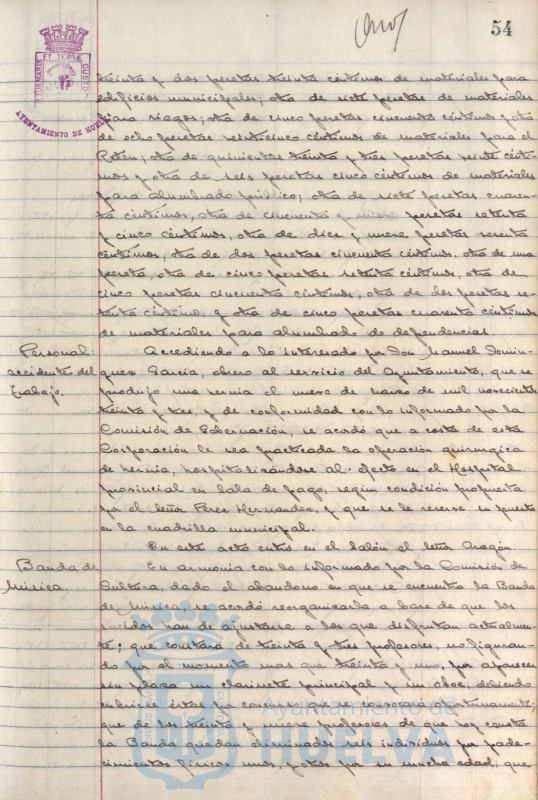 54
PORTUS MARIS ET TERRAE CUSTODIA
AYUNTAMIENTO DE HUELVA
treinta y dos pesetas treinta céntimos de materiales para
edificios municipales; otra de siete pesetas de materiales
para riegos; otra de cinco pesetas cincuenta céntimos y otra
de ocho pesetas veinticinco céntimos de materiales para el
de quinientas treinta y tres pesetas veinte cénti-
mos y otra de seis pesetas cinco céntimos de materiales
para alumbrado público; otra de siete pesetas cuaren-
ta céntimos, otra de cincuenta y nueve pesetas setenta
y cinco céntimos, otra de diez y nueve pesetas sesenta
céntimos, otra de dos pesetas cincuenta céntimos, otra de una
peseta, otra de cinco pesetas setenta céntimos, otra de
cinco pesetas cincuenta céntimos, otra de dos pesetas se-
tenta céntimos y otra de cinco pesetas cuarenta céntimos
de materiales para alumbrado de dependencias.
Personal:
accidentes del
trabajo.
Accediendo a lo interesado por Don Manuel Domín-
guez García, obrero al servicio del Ayuntamiento, que se
produjo una hernia el nueve de marzo de mil novecientos
treinta y tres, y de conformidad con lo informado por la
Comisión de Gobernación, se acordó que a costa de esta
Corporación le sea practicada la operación quirúrgica
de hernia, hospitalizándose al efecto en el Hospital
provincial en sala de pago, según condición propuesta
por el señor Perez Hernandez, y que se le reserve su puesto
en la cuadrilla municipal.
En este acto entró en el salón el señor Aragón.
Banda de
Música.
En armonía con lo informado por la Comisión de
Cultura, dado el abandono en que se encuentra la Banda
de Música, se acordó reorganizarla a base de que los
sueldos han de ajustarse a los que disfrutan actualmen-
te; que constará de treinta y tres profesores, no ligan-
do por el momento mas que treinta y uno, por aparecer
sin plaza un clarinete principal y un oboe, debiendo
cubrirse éstas por concurso que se convocará oportunamente;
que de los treinta y nueve profesores de que hoy consta
la Banda quedan eliminados seis individuos por pade-
cimientos físicos unos, y otros por su mucha edad; que
Ayuntamiento de
HUELVA